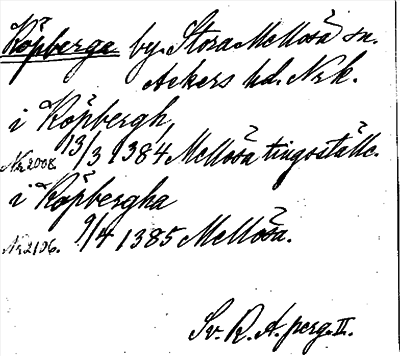 Köpberga by. Stora Mellösa sn.
Askers hd. Nrk.
i Köpbergh
Nr 2008. 13/3 1384 Mellösa tingställe.
i Köpbergha
Nr 2106. 9/4 1385 Mellösa.
Sv. R. A. perg. II.